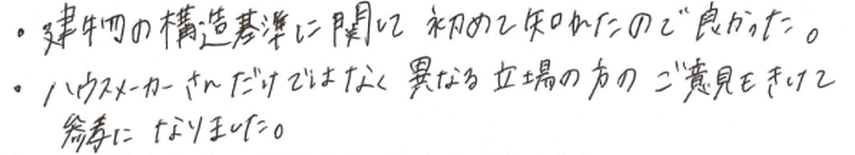 ・建物の構造基準に関して初めて知れたので良かった。
・ハウスメーカーさんだけではなく異なる立場の方のご意見もきけて
参考になりました。